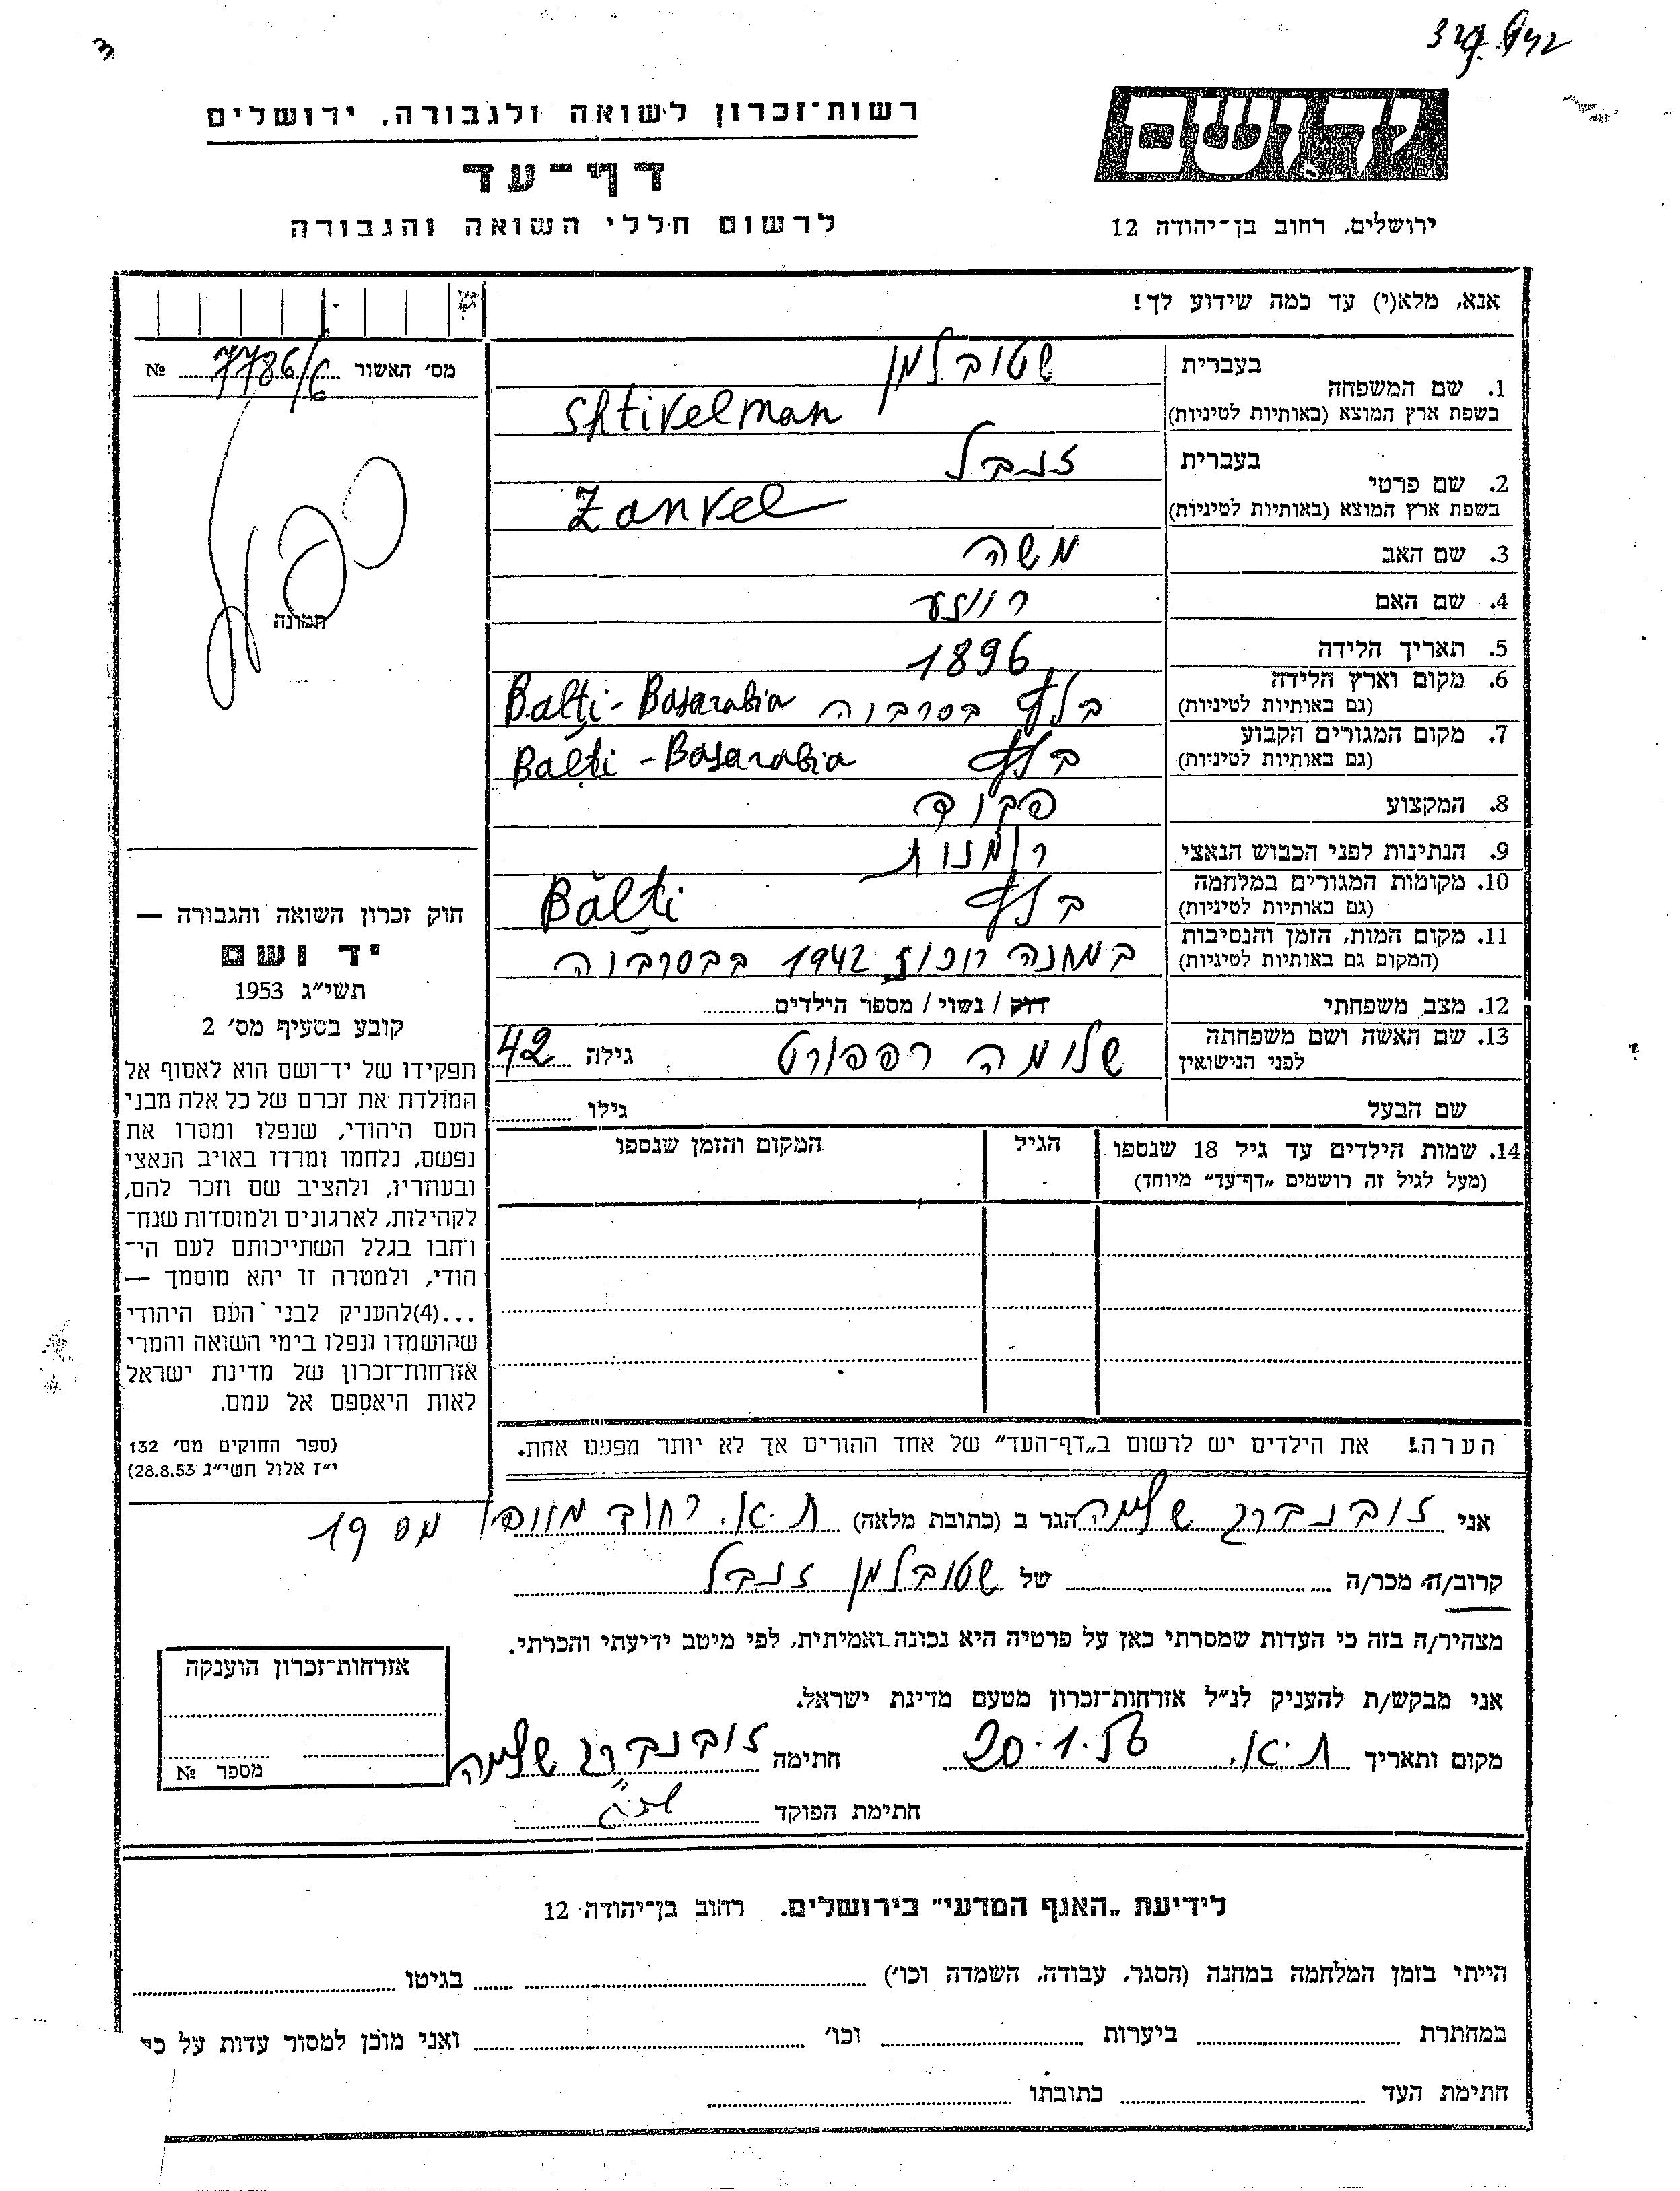 יד ושם
רשות־זכרון לשואה ולגבורה, ירושלים
דף־עד
לרשום חללי השואה והגבורה
ירושלים, רחוב בן־יהודה 12
אנא, מלא(י) עד כמה שידוע לך!
מס׳ האשור 7786/6 №
תמונה
1. שם המשפחה בעברית שטובלמן
בשפת ארץ המוצא (באותיות לטיניות) Shtivelman
2. שם פרטי בעברית זנבל
בשפת ארץ המוצא (באותיות לטיניות) Zanvel
3. שם האב משה
4. שם האם רויזע
5. תאריך הלידה 1896
6. מקום וארץ הלידה (גם באותיות לטיניות) בלץ בסרביה Balţi - Basarabia
7. מקום המגורים הקבוע (גם באותיות לטיניות) בלץ Balţi - Basarabia
8. המקצוע פקיד
9. הנתינות לפני הכבוש הנאצי רומנית
10. מקומות המגורים במלחמה (גם באותיות לטיניות) בלץ Bălti
11. מקום המות, הזמן והנסיבות (המקום גם באותיות לטיניות) במחנה ריכוז 1942 בבסרביה
12. מצב משפחתי רווק / נשוי / מספר הילדים
13. שם האשה ושם משפחתה לפני הנישואין שלומה רפפורט גילה 42
שם הבעל גילו
14. שמות הילדים עד גיל 18 שנספו הגיל המקום והזמן שנספו
(מעל לגיל זה רושמים „דף־עד״ מיוחד)
הערה! את הילדים יש לרשום ב„דף־העד״ של אחד ההורים אך לא יותר מפעם אחת.
חוק זכרון השואה והגבורה —
יד ושם
תשי״ג 1953
קובע בסעיף מס׳ 2
תפקידו של יד־ושם הוא לאסוף אל
המולדת את זכרם של כל אלה מבני
העם היהודי, שנפלו ומסרו את
נפשם, נלחמו ומרדו באויב הנאצי
ובעוזריו, ולהציב שם וזכר להם,
לקהילות, לארגונים ולמוסדות שנח־
רבו בגלל השתייכותם לעם הי־
הודי, ולמטרה זו יהא מוסמך —
...(4)להעניק לבני העם היהודי
שהושמדו ונפלו בימי השואה והמרי
אזרחות־זכרון של מדינת ישראל
לאות היאספם אל עמם.
(ספר החוקים מס׳ 132
י״ז אלול תשי״ג 28.8.53)
אני זובנברג שלומה הגר ב (כתובת מלאה) ת.א. רחוב מס 19
קרוב/ה מכר/ה של שטובלמן זנבל
מצהיר/ה בזה כי העדות שמסרתי כאן על פרטיה היא נכונה ואמיתית, לפי מיטב ידיעתי והכרתי.
אני מבקש/ת להעניק לנ״ל אזרחות־זכרון מטעם מדינת ישראל.
מקום ותאריך ת.א. 20.1.56 חתימה זובנברג שלומה
חתימת הפוקד
אזרחות־זכרון הוענקה
מספר №
לידיעת „האגף המדעי״ בירושלים. רחוב בן־יהודה 12
הייתי בזמן המלחמה במחנה (הסגר, עבודה, השמדה וכו׳) בגיטו
במחתרת ביערות וכו׳ ואני מוכן למסור עדות על כך
חתימת העד כתובתו